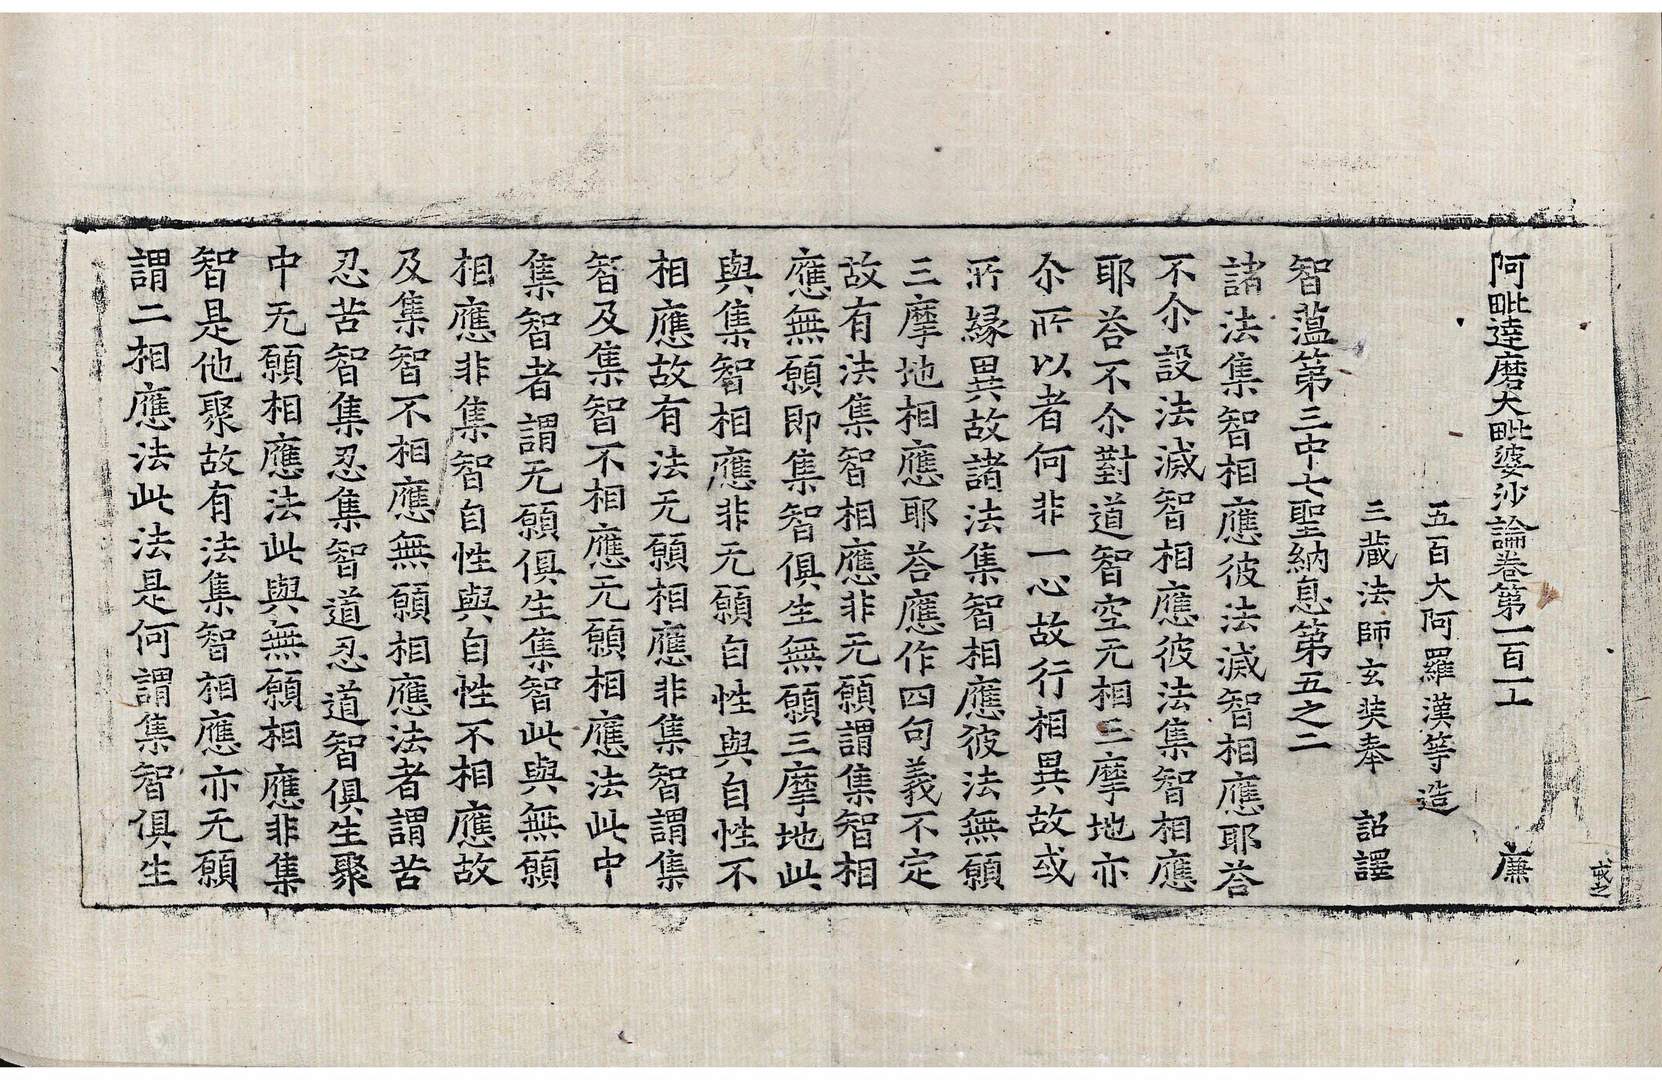 阿毗達磨大毗婆沙論卷第一百一十 廉
五百大阿羅漢等造
三藏法師玄奘奉 詔譯
智藴第三中七聖納息第五之二
諸法集智相應彼法滅智相應耶荅
不尒設法滅智相應彼法集智相應
耶荅不尒對道智空无相三摩地亦
尒所以者何非一心故行相異故或
所緣異故諸法集智相應彼法無願
三摩地相應耶荅應作四句義不定
故有法集智相應非无願謂集智相
應無願即集智俱生無願三摩地此
與集智相應非无願自性與自性不
相應故有法无願相應非集智謂集
智及集智不相應无願相應法此中
集智者謂无願俱生集智此與無願
相應非集智自性與自性不相應故
及集智不相應無願相應法者謂苦
忍苦智集忍集智道忍道智俱生聚
中无願相應法此與無願相應非集
智是他聚故有法集智相應亦无願
謂二相應法此法是何謂集智俱生